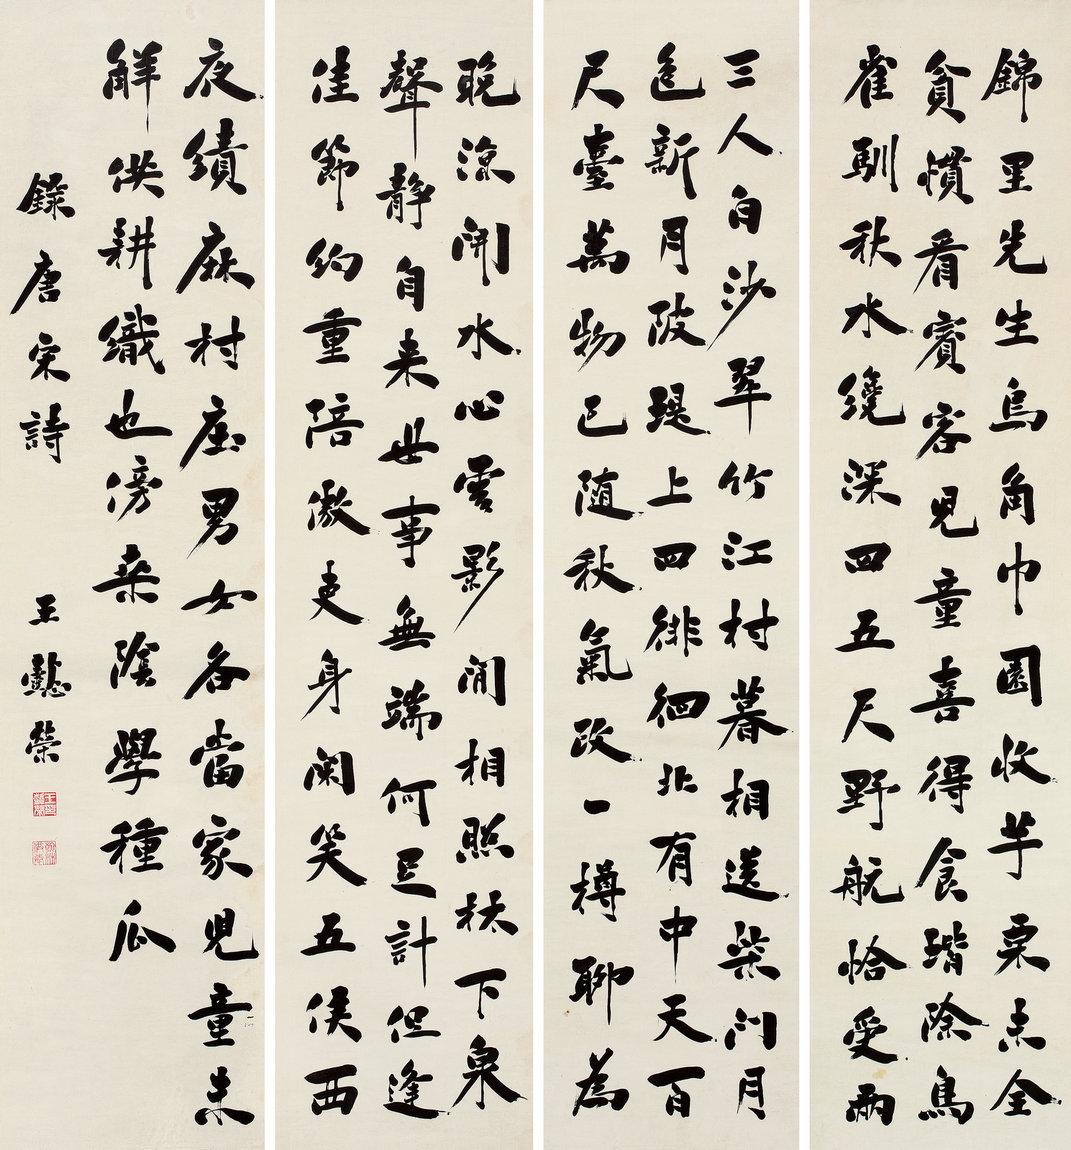 錦里先生烏角巾園收芋栗未全
貧慣看賓客兒童喜得食堦除鳥
雀馴秋水纔深四五尺野航恰受兩
三人白沙翠竹江村暮相送柴門月
色新月陂堤上四徘徊北有中天百
尺臺萬物已随秋氣改一樽聊為
晚涼開水心雲影閒相照林下泉
聲靜自来世事無端何足計但逢
佳節約重陪傲吏身閑笑五侯西
夜績麻村庄男女各當家兒童未
解供耕織也傍桒陰學種瓜
錄唐宋詩 王懿榮